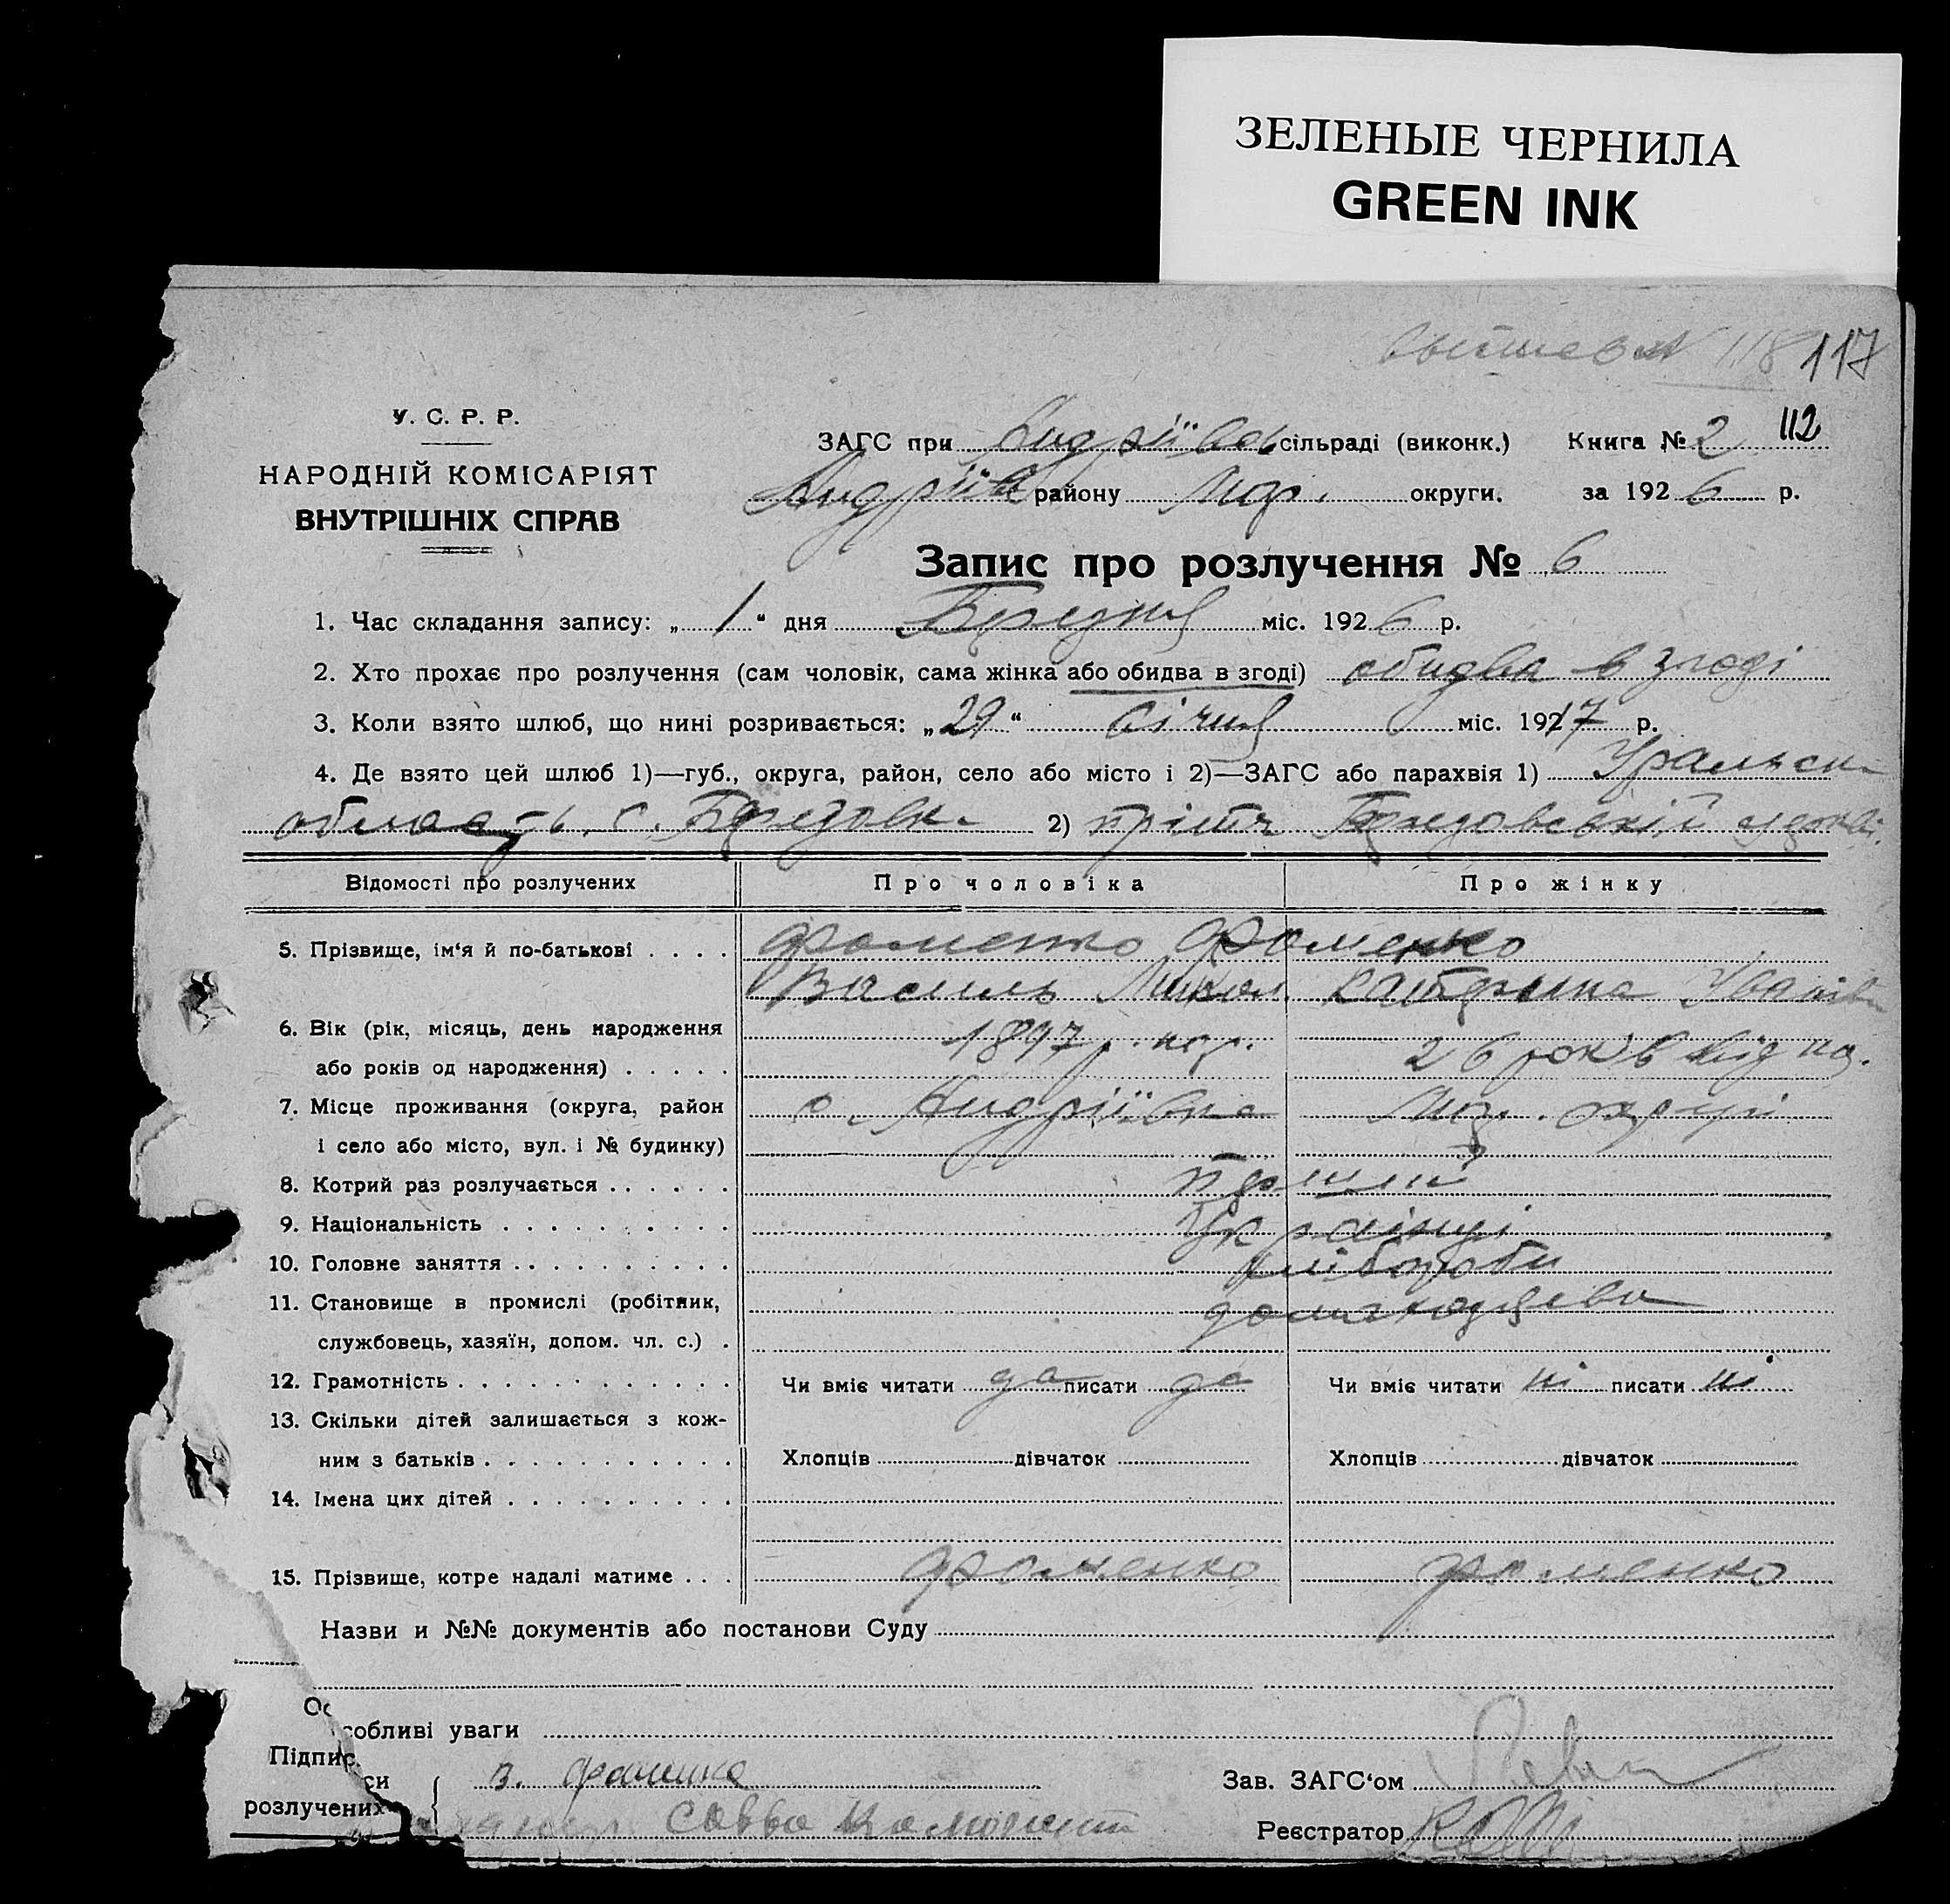 ЗЕЛЕНЫЕ ЧЕРНИЛА
GREEN INK
118 117
У. С. Р. Р.
НАРОДНІЙ КОМІСАРІЯТ
ВНУТРІШНІХ СПРАВ
ЗАГС при Андріївсь сільраді (виконк.) Книга № 2 112
Андріїв району округи. за 1926 р.
Запис про розлучення № 6
1. Час складання запису: „ 1 “ дня Березня міс. 1926 р.
2. Хто прохає про розлучення (сам чоловік, сама жінка або обидва в згоді) обидва в згоді
3. Коли взято шлюб, що нині розривається: „29“ Січня міс. 1917 р.
4. Де взято цей шлюб 1)—губ., округа, район, село або місто і 2)—ЗАГС або парахвія 1) Уральськ
область, с. 2)
Відомості про розлучених Про чоловіка Про жінку
5. Прізвище, ім‘я й по-батькові . . . . Фоменко Фоменко
Василь Микол Катерина Іванівн
6. Вік (рік, місяць, день народження 1897 р. нар.
або років од народження) . . . . . 26 років від на.
7. Місце проживання (округа, район с. Андріївка округи
і село або місто, вул. і № будинку)
8. Котрий раз розлучається . . . . . .
9. Національність . . . . . . . . . . Українці
10. Головне заняття . . . . . . . . . . хлібороби
11. Становище в промислі (робітник,
службовець, хазяїн, допом. чл. с.) .
12. Грамотність . . . . . . . . . . . . Чи вміє читати да писати да Чи вміє читати ні писати ні
13. Скільки дітей залишається з кож-
ним з батьків . . . . . . . . . . . Хлопців дівчаток Хлопців дівчаток
14. Імена цих дітей . . . . . . . . . .
15. Прізвище, котре надалі матиме . . . Фоменко Фоменко
Назви и №№ документів або постанови Суду
Особливі уваги
Підписи В. Зав. ЗАГС‘ом
розлучених Савва Реєстратор